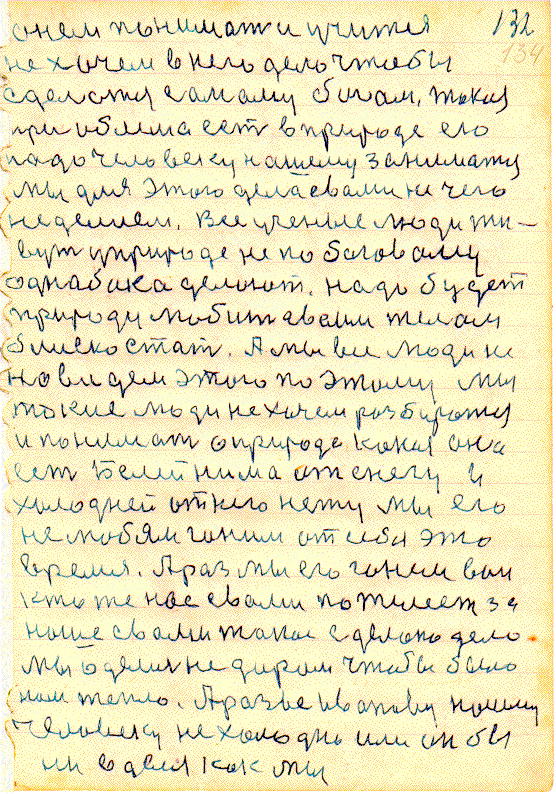 онем понимат и учится 132
134
не хочем в него дело чтобы
сделатся самому богам, такая
приоблима ест в природе его
надо человеку нашему заниматся
мы для этого дела свами не чего
неделием. Все ученые люди жи-
вут уприроде не по боговому
однабока делоют. Надо будет
природи любит авоим телам
блиско стат. А мы все люди не
новидем этого по этому мы
такие люди не хочем разбиратся
и понимат оприрода какая она
ест белей нима от снегу и
холодней отнего нету мы его
не любям гоним от себя это
время. А раз мы его гоним вон
кто же нас свами пожилеет за
наше свами такое сделоно дело
мы оделия не даром чтобы было
нам тепло. А разве Иванову нашему
человеку не холодно или он бы
ни оделя как мы